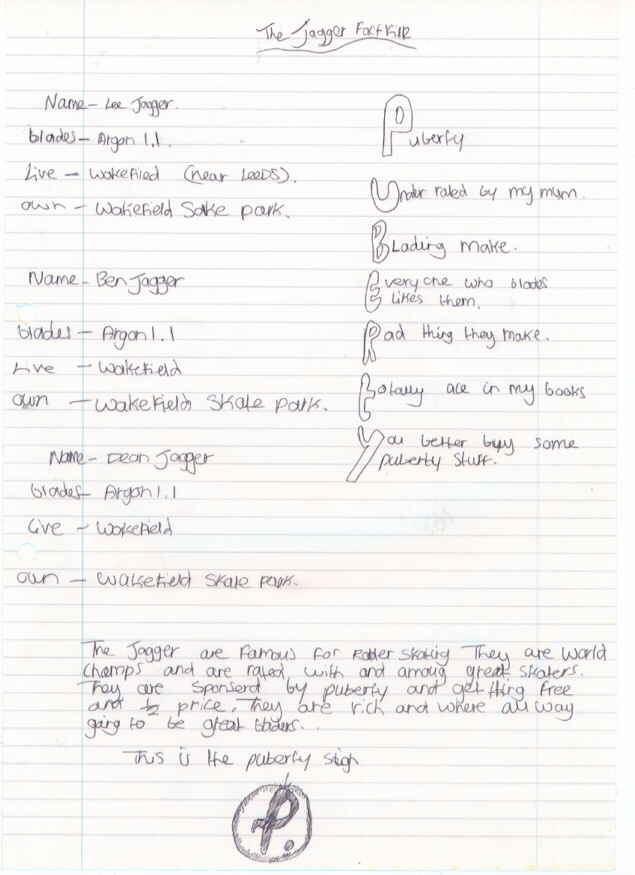 The Jagger Factfile
Name - Lee Jagger.
blades - Argon 1.1.
Live - Wakefiled (near LEEDS).
own - Wakefield Skate park.
Name - Ben Jagger
blades - Argon 1.1
Live - Wakefield
own - Wakefield Skate park.
Name - Dean Jagger
blades - Argon 1.1
Live - Wakefield
own - Wakefield Skate park.
Puberty
Under rated by my mum.
BLading make.
Everyone who blades
likes them.
Rad thing they make.
totally ace in my books
You better buy some
puberty stuff.
The Jagger are famous for Roller skating They are world
champs and are rated with and amoug great skaters.
They are sponserd by puberty and get thing free
and ½ price. They are rich and where all way
going to be great bladers...
This is the puberty sign
P.